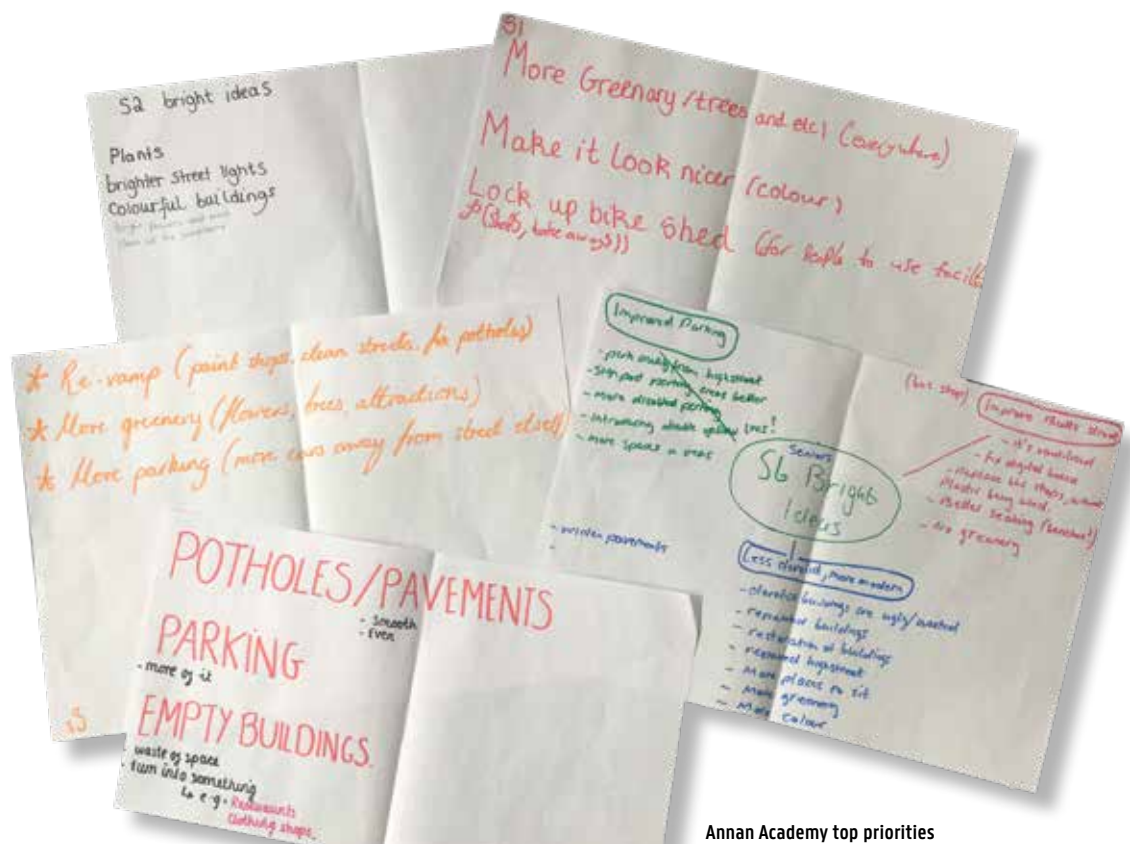 S2 bright ideas
Plants
brighter street lights
Colourful buildings
S1
More Greenary/trees and etc) (everywhere)
Make it look nicer (colour)
Lock up bike shed (for people to use
(shops, take aways))
★ Re-vamp (paint shops, clean streets, fix potholes)
★ More greenery (flowers, trees, attractions)
★ More parking (more cars away from street itself)
S3
Improved Parking
- park away from highstreet
- Signpost parking areas better
- More disabled parking
- introducing double yellow lines!
- more spaces in areas
Seniors
S6 Bright
Ideas
(bus stop)
Improve street
- it's
- fix digital
- Replace bus stops, without
Plastic being used.
- Better Seating (benches!)
- No greenery
- widen pavements
Less derelict, more modern
- derelict buildings are ugly/wasted
- buildings
- restoration of buildings
- highstreet
- More places to sit
- More greenery
- More colour
POTHOLES/PAVEMENTS
- Smooth
- Even
PARKING
- more of it
EMPTY BUILDINGS.
- waste of space
- turn into something
↳ e.g. Restaurants
Clothing shops.
Annan Academy top priorities